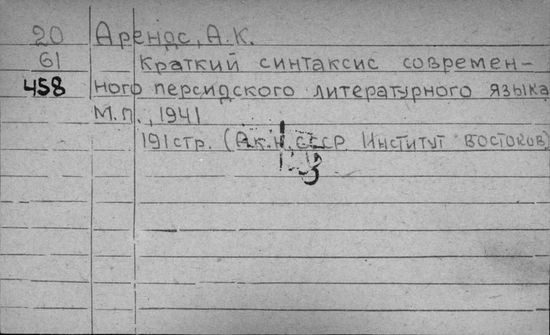 20 Арендс, А.К.
61 Краткий синтаксис современ-
458 ного персидского литературного языка
М.Л., 1941
191 стр. (Ак.Н. СССР Институт востоков)